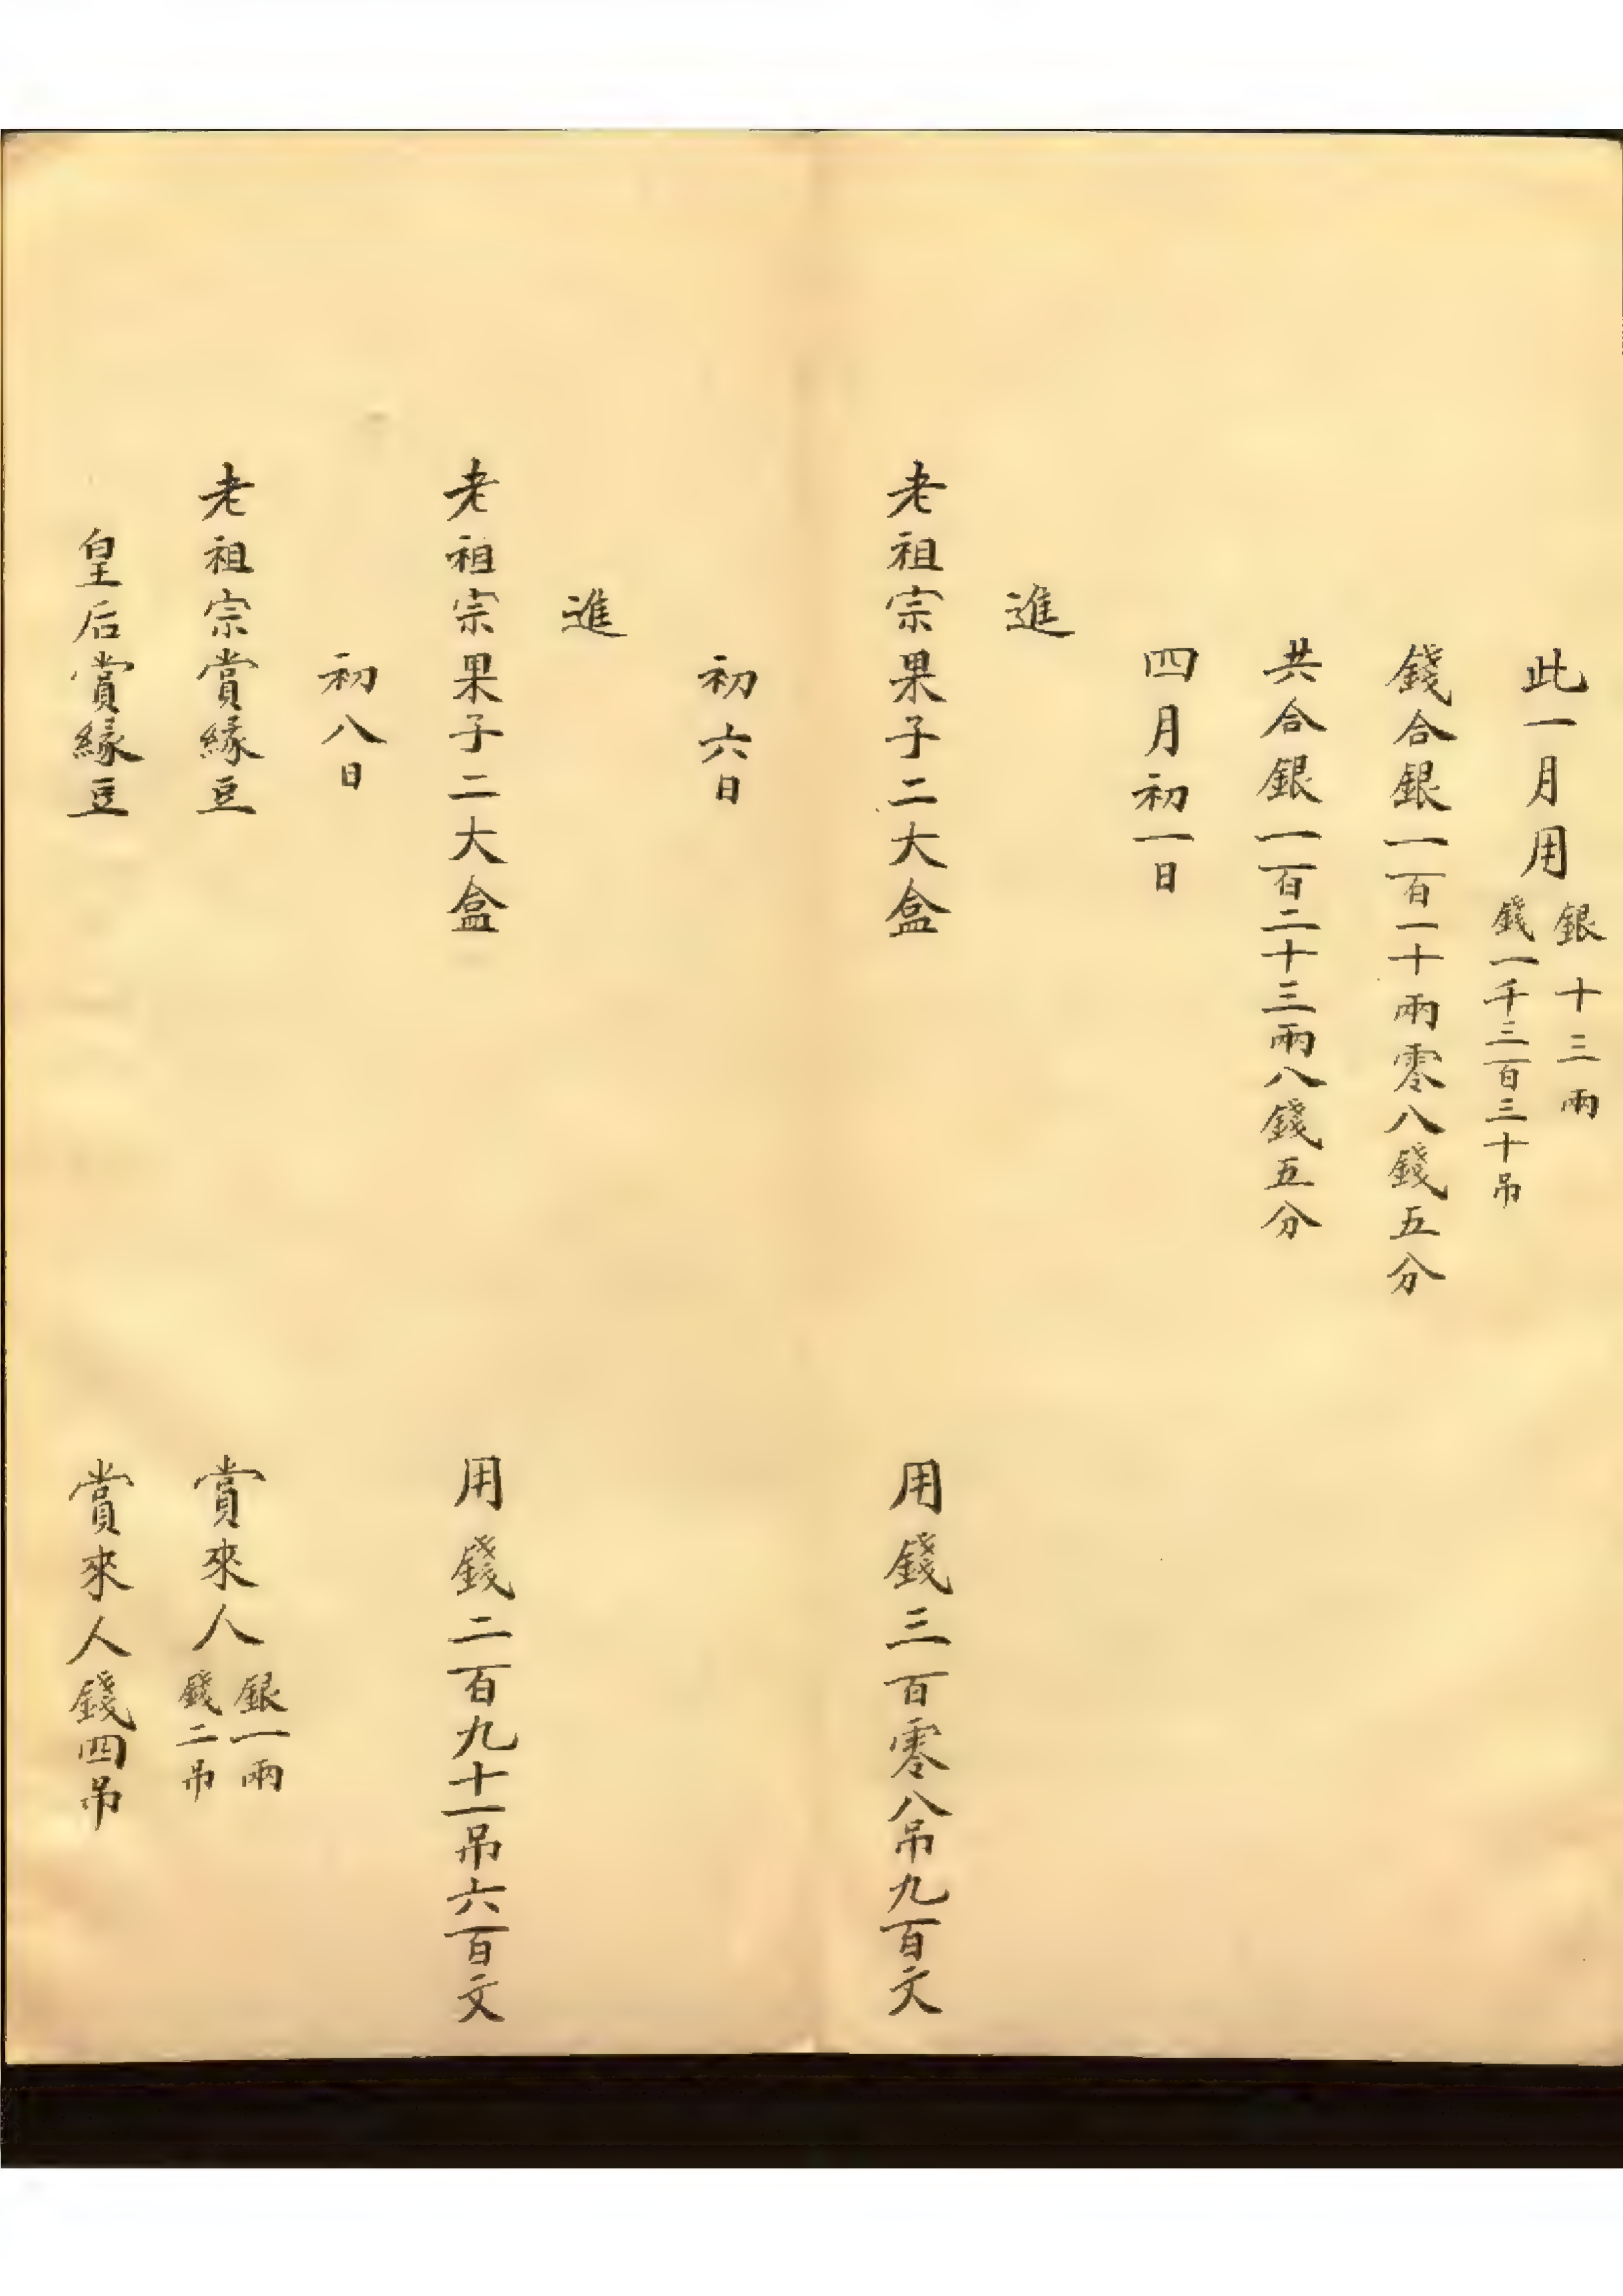 此一月用銀十三兩
錢一千三百三十吊
錢合銀一百一十兩零八錢五分
共合銀一百二十三兩八錢五分
四月初一日
進
老祖宗果子二大盒 用錢三百零八吊九百文
初六日
進
老祖宗果子二大盒 用錢二百九十一吊六百文
初八日
老祖宗賞緣豆 賞來人銀一兩
錢二吊
皇后賞緣豆 賞來人錢四吊